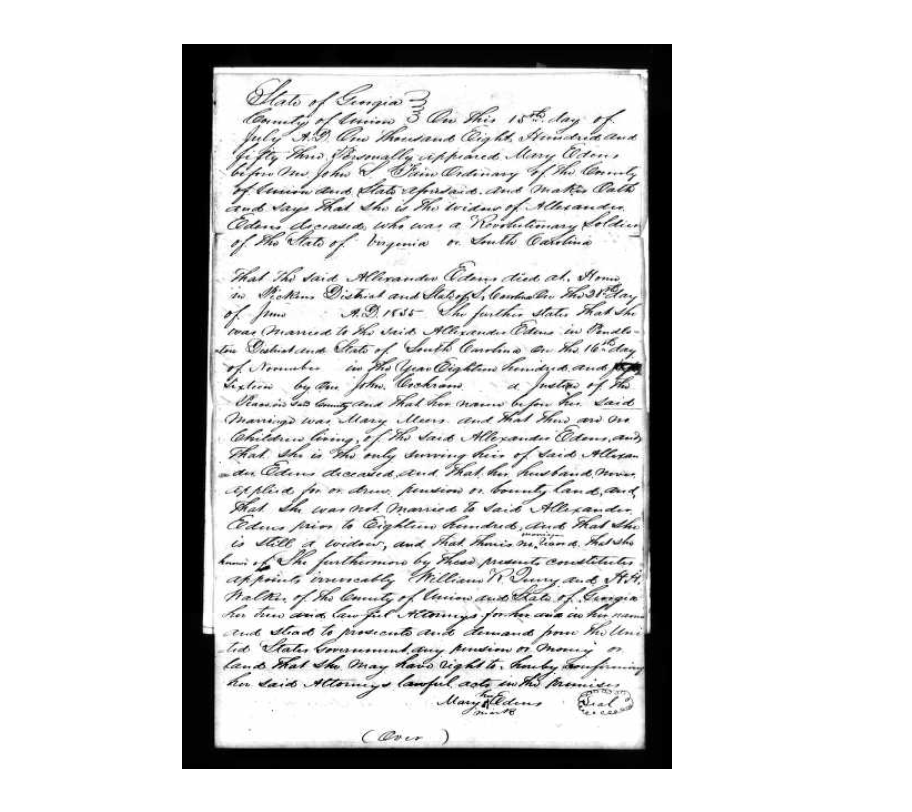 State of Georgia
County of Union On This 15th day of
July A.D. One Thousand Eight Hundred and
fifty three Personally appeared Mary Edens
before me John S. Fain Ordinary of the County
of Union and State aforesaid and makes Oath
and says That she is the widow of Alexander
Edens deceased who was a Revolutionary Soldier
of the State of Virginia or South Carolina
That The said Allexander Edens died at Home
in Pickens District and State of S. Carolina On the day
of June A.D. 1835 She further states That she
was married to the said Allexander Edens in Pendle-
ton District and State of South Carolina on the 16th day
of November in the Year Eighteen hundred and
Sixteen by one John Cochram a Justice of the
said County and that her name before her said
Marriage was Mary Meers and that there are no
Children living, of the said Allexander Edens, and
That she is the only surving heir of said Allexan-
der Edens deceased, and that her husband never
applied for or drew pension or bounty land, and
That she was not married to said Allexander
Edens prior to Eighteen hundred, and that she
is still a widow, and that there is no record that she
knows of She furthermore by these presents constitutes
appoints irrevocably William R. and H. H.
Walker of the County of Union and State of Georgia
her true and lawful Attorneys for her and in her name
and stead to prosecute and demand from the Uni-
ted States Government any pension or money or
land that she may have right to, hereby confirming
her said Attorneys lawful acts in the premises
Mary her Edens Seal
mark
(Over)